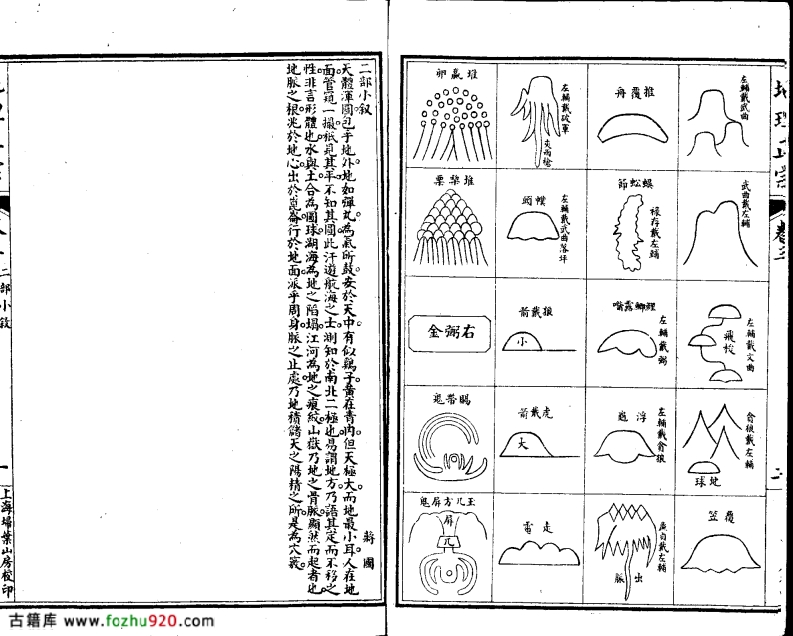 地理正宗
卷三
二
左輔戴武曲
武曲戴左輔
左輔戴文曲
飛梭
貪狼戴左輔
地球
覆笠
推覆舟
蜈蚣節
祿存戴左輔
鯉鯽露嘴
左輔戴弼
浮
左輔戴貪狼
廉貞戴左輔
出脈
左輔戴破軍
左輔戴武曲落坪
幞頭
狼戴箭
小
虎戴箭
大
走電
堆贏卵
堆梨栗
右弼金
賜帶鬼
玉几方屏鬼
屏
几
二部小敘
蔣國
天體渾圓包乎地外地如彈丸為氣所鼓安於天中有似鷄子黃在青內但天極大而地最小耳人在地
面管窺一撮祇見其平不知其圓此汗遊航海之士測知於南北二極也易謂地方乃語其定而不移之
性非言形體也水與土合為圓球湖海為地之陷塌江河為地之痕紋山嶽乃地之骨脈顯然而起者也
地脈之根兆於地心出於崑崙行於地面派乎周身脈之止處乃地積儲天之陽精之所是為穴竅
二部小敘
一
上海埽葉山房校印
古籍库 www.fozhu920.com